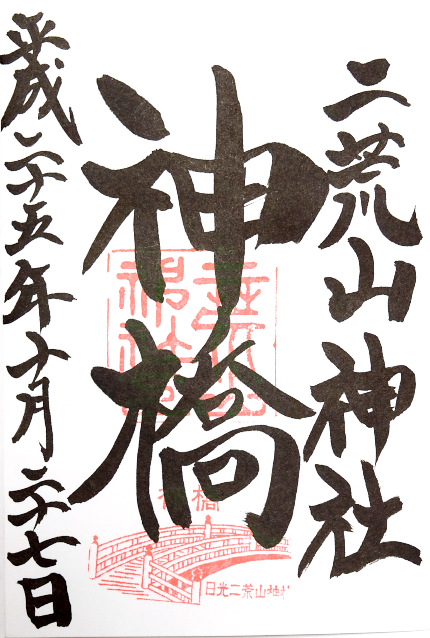 二荒山神社
神橋
平成二十五年十月二十七日
神橋
日光二荒山神社